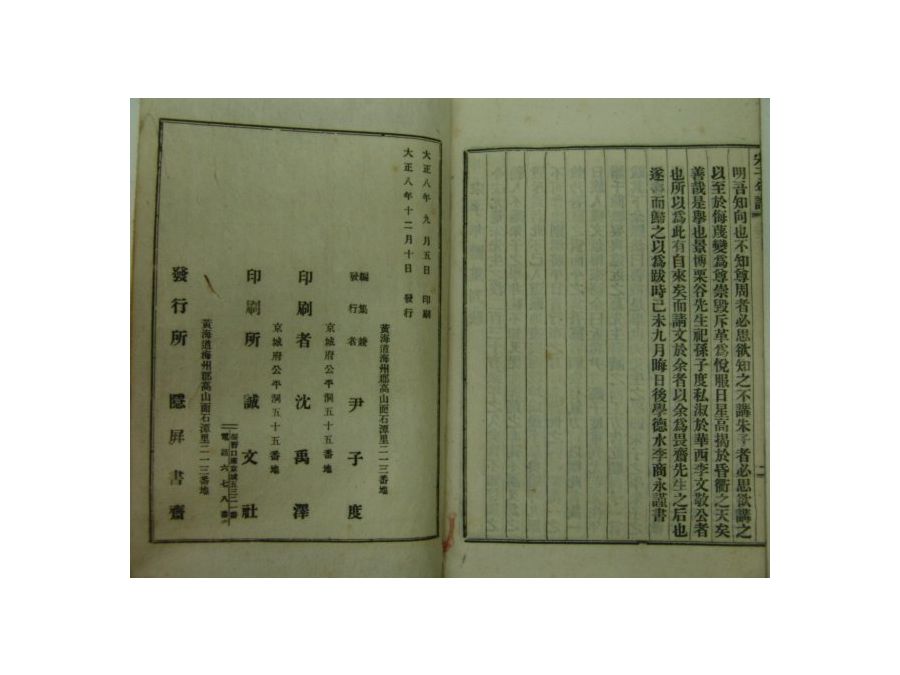 明吾知向也不知尊周者必思欲知之不講朱子者必思欲講之
以至於侮蔑變爲尊崇毁斥革爲悅服日星高揭於昏衢之天矣
善哉是擧也景博栗谷先生祀孫子度私淑於華西李文敬公者
也所以爲此有自來矣而請文於余者以余爲畏齋先生之后也
遂書而歸之以爲跋時己未九月晦日後學德水李商永謹書
二
大正八年九月五日 印刷
大正八年十二月十日 發行
黃海道海州郡高山面石潭里二一三番地
編集兼發行者 尹子度
京城府公平洞五十五番地
印刷者 沈禹澤
京城府公平洞五十五番地
印刷所 誠文社
電話六七八番
黃海道海州郡高山面石潭里二一三番地
發行所 隱屛書齋